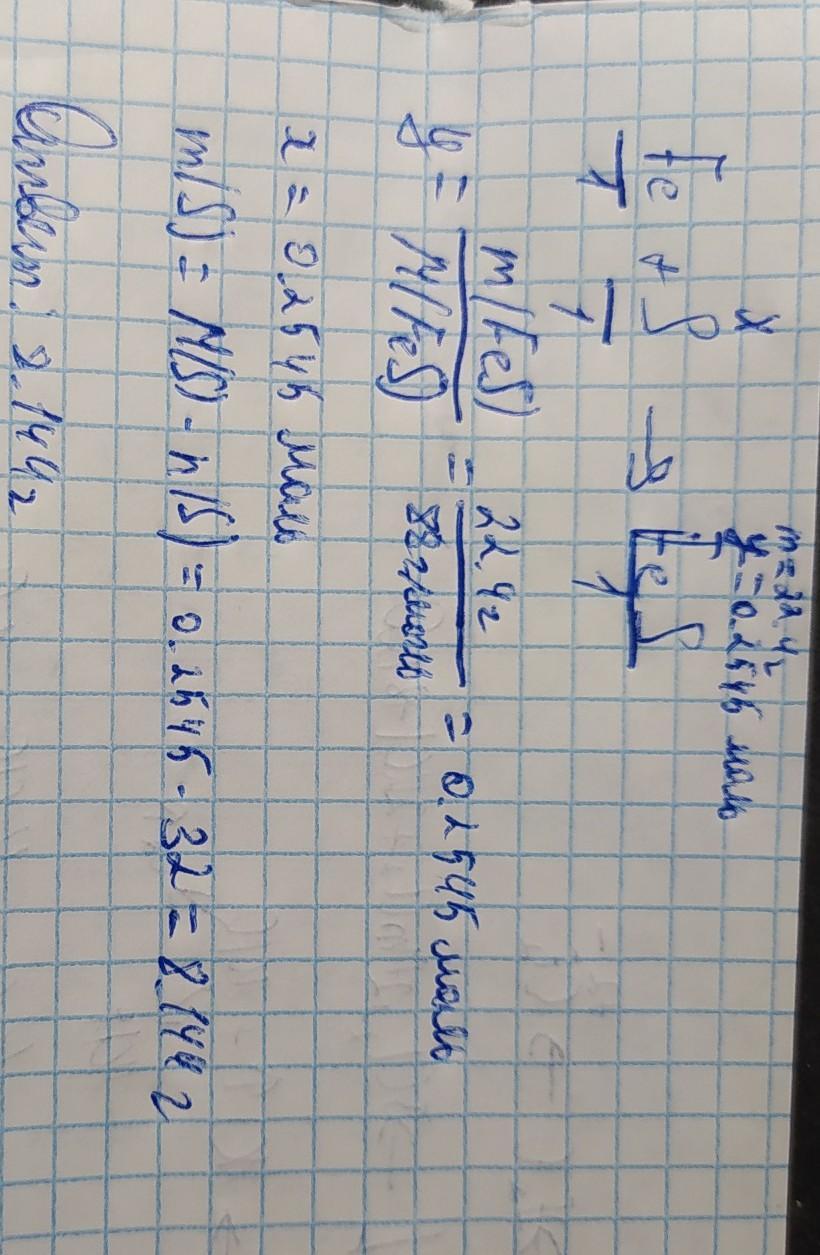 m = 22.4г
x y = 0.2545 моль
Fe + S → FeS
1 1 1
y = m(FeS) / M(FeS) = 22.4г / 88г/моль = 0.2545 моль
x = 0.2545 моль
m(S) = M(S) · n(S) = 0.2545 · 32 = 8.144г
Ответ: 8.144г